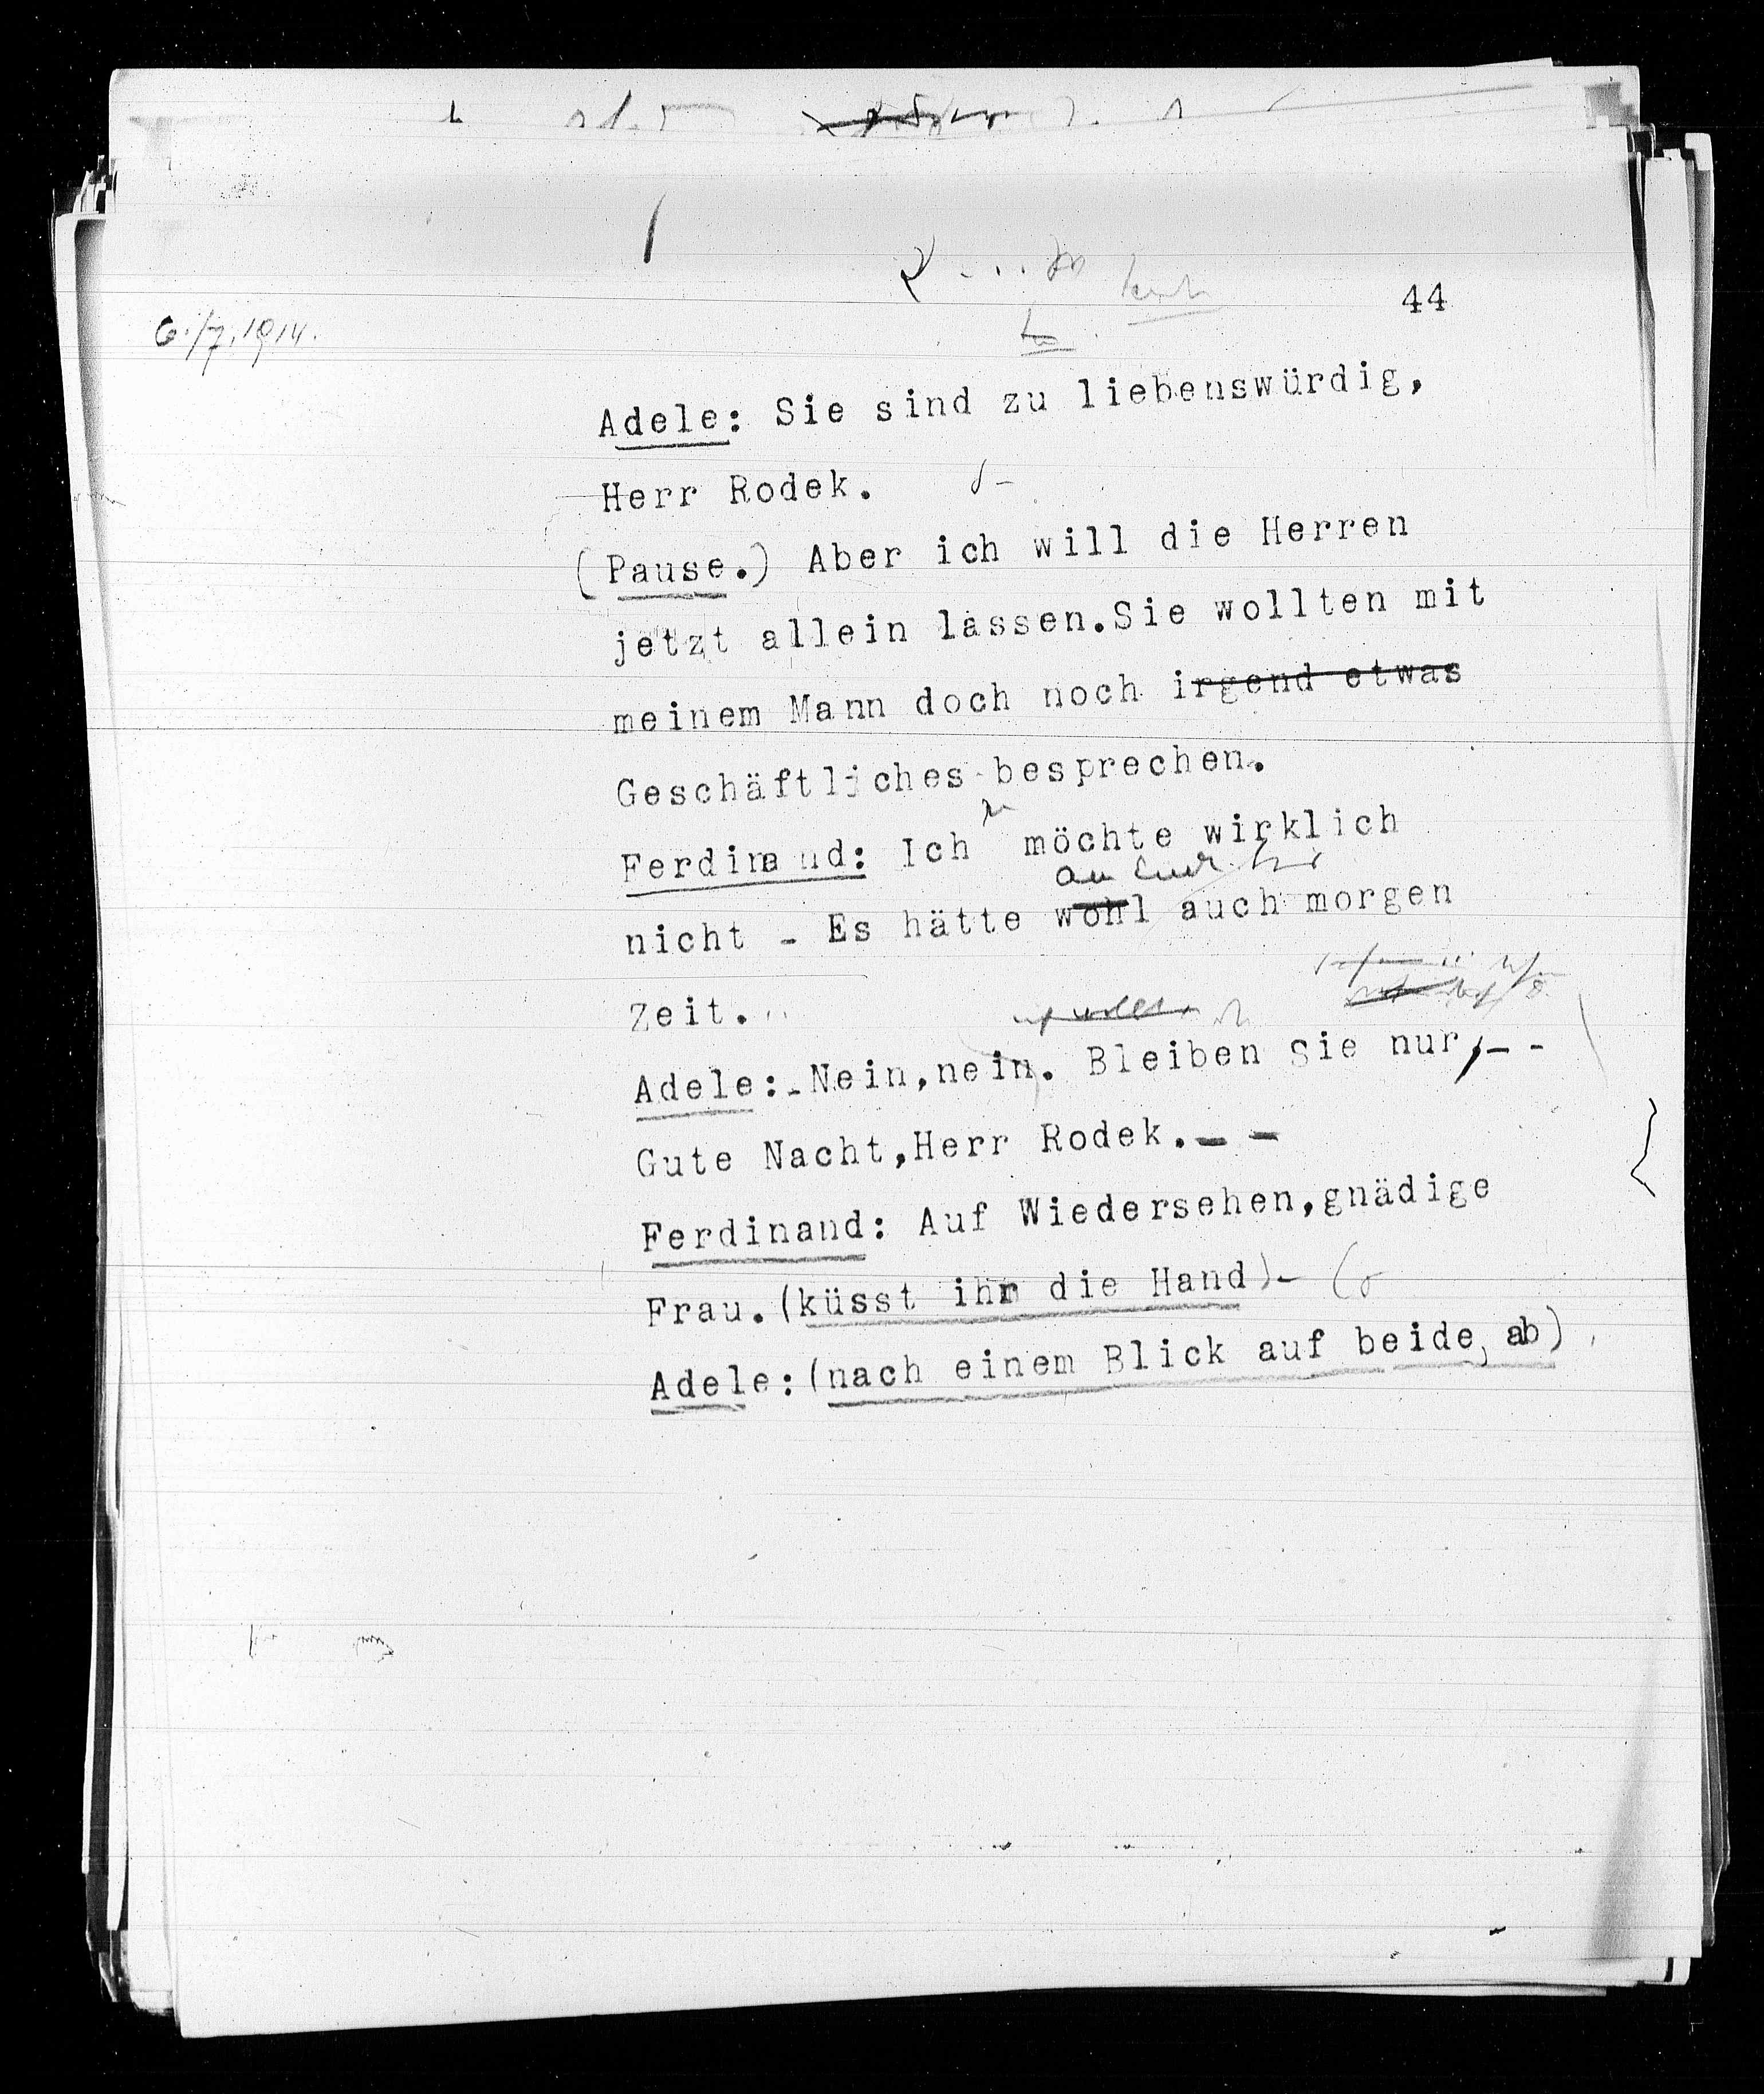 44
6./7.1914.
Adele: Sie sind zu liebenswürdig,
Herr Rodek.
(Pause.) Aber ich will die Herren
jetzt allein lassen.Sie wollten mit
meinem Mann doch noch irgend etwas
Geschäftliches besprechen.
Ferdinand: Ich möchte wirklich
nicht - Es hätte wohl auch morgen
Zeit.
Adele:-Nein,nein. Bleiben Sie nur,--
Gute Nacht,Herr Rodek.- -
Ferdinand: Auf Wiedersehen,gnädige
Frau.(küsst ihr die Hand)-
Adele:(nach einem Blick auf beide, ab)